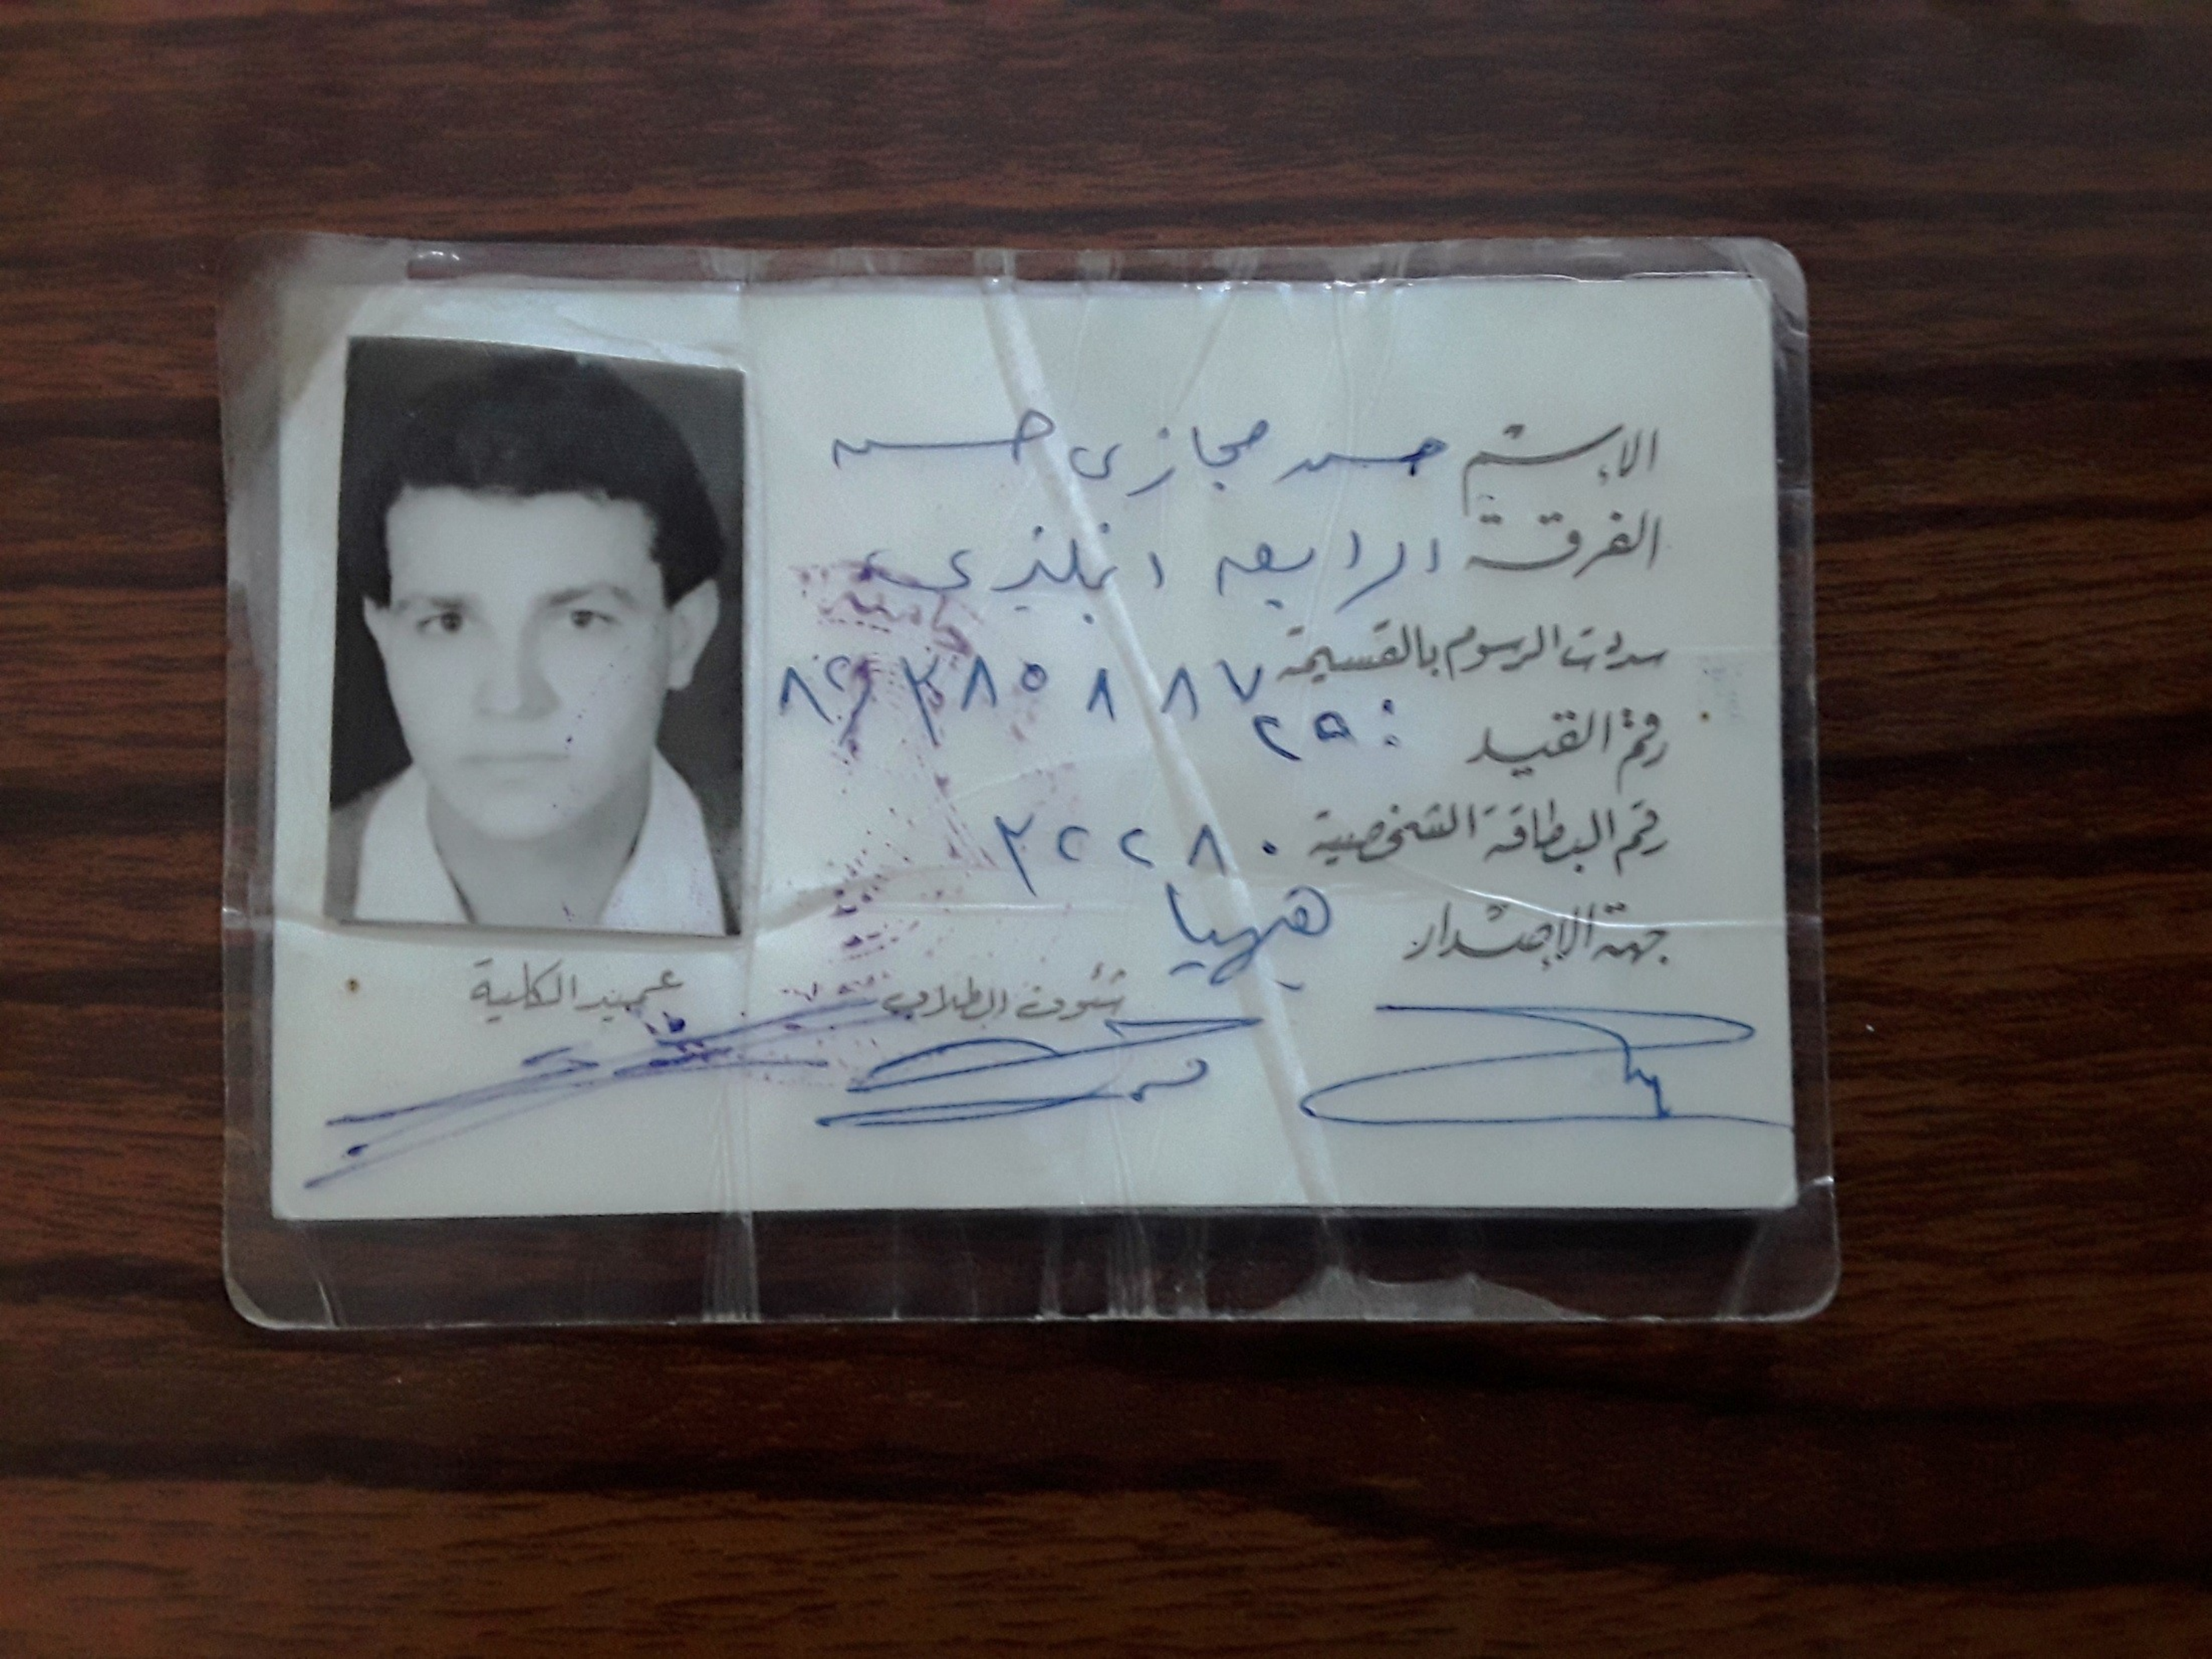 الاسم حسن حجازى حسن
الفرقة الرابعه انجليزى
سددت الرسوم بالقسيمة
رقم القيد : ٢٥
رقم البطاقة الشخصية ٣٢٢٨٠
جهة الإصدار ههيا
شئون الطلاب عميد الكلية
جامعة